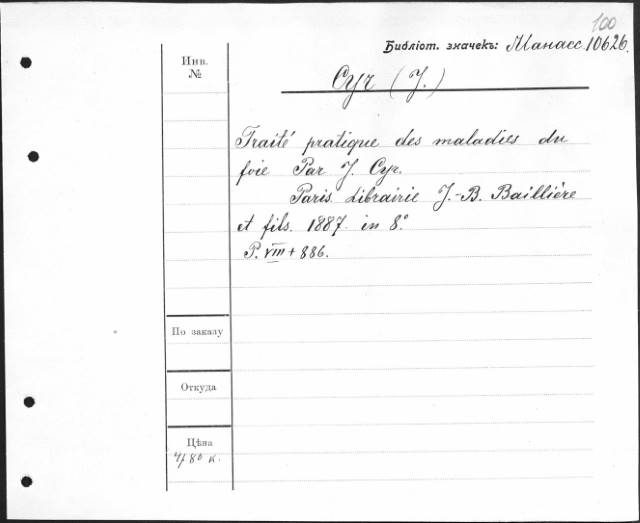 100
Библіот. значекъ: Манасс. 10626.
Инв. №
Cyr (J.)
Traité pratique des maladies du
foie Par J. Cyr.
Paris. Librairie J.-B. Baillière
et fils. 1887. in 8°.
P. VIII + 886.
По заказу
Откуда
Цѣна
к.